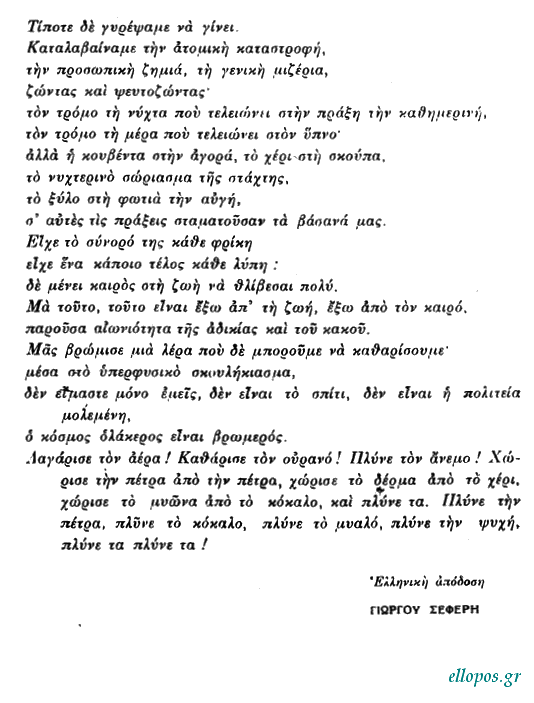 Τίποτε δὲ γυρέψαμε νὰ γίνει.
Καταλαβαίναμε τὴν ἀτομικὴ καταστροφή,
τὴν προσωπικὴ ζημιά, τὴ γενικὴ μιζέρια,
ζώντας καὶ ψευτοζώντας·
τὸν τρόμο τὴ νύχτα ποὺ τελειώνει στὴν πράξη τὴν καθημερινή,
τὸν τρόμο τὴ μέρα ποὺ τελειώνει στὸν ὕπνο·
ἀλλὰ ἡ κουβέντα στὴν ἀγορά, τὸ χέρι στὴ σκούπα,
τὸ νυχτερινὸ σώριασμα τῆς στάχτης,
τὸ ξύλο στὴ φωτιὰ τὴν αὐγή,
σ' αὐτὲς τὶς πράξεις σταματοῦσαν τὰ βάσανά μας.
Εἶχε τὸ σύνορό της κάθε φρίκη
εἶχε ἕνα κάποιο τέλος κάθε λύπη :
δὲ μένει καιρὸς στὴ ζωὴ νὰ θλίβεσαι πολύ.
Μὰ τοῦτο, τοῦτο εἶναι ἔξω ἀπ' τὴ ζωή, ἔξω ἀπὸ τὸν καιρό,
παροῦσα αἰωνιότητα τῆς ἀδικίας καὶ τοῦ κακοῦ.
Μᾶς βρώμισε μιὰ λέρα ποὺ δὲ μποροῦμε νὰ καθαρίσουμε·
μέσα στὸ ὑπερφυσικὸ σκουλήκιασμα,
δὲν εἴμαστε μόνο ἐμεῖς, δὲν εἶναι τὸ σπίτι, δὲν εἶναι ἡ πολιτεία
μολεμένη,
ὁ κόσμος ὁλάκερος εἶναι βρωμερός.
Λαγάρισε τὸν ἀέρα ! Καθάρισε τὸν οὐρανό ! Πλύνε τὸν ἄνεμο ! Χώ-
ρισε τὴν πέτρα ἀπὸ τὴν πέτρα, χώρισε τὸ δέρμα ἀπὸ τὸ χέρι,
χώρισε τὸ μυῶνα ἀπὸ τὸ κόκαλο, καὶ πλύνε τα. Πλύνε τὴν
πέτρα, πλῦνε τὸ κόκαλο, πλύνε τὸ μυαλό, πλύνε τὴν ψυχή,
πλύνε τα πλύνε τα !
Ἑλληνικὴ ἀπόδοση
ΓΙΩΡΓΟΥ ΣΕΦΕΡΗ
ellopos.gr